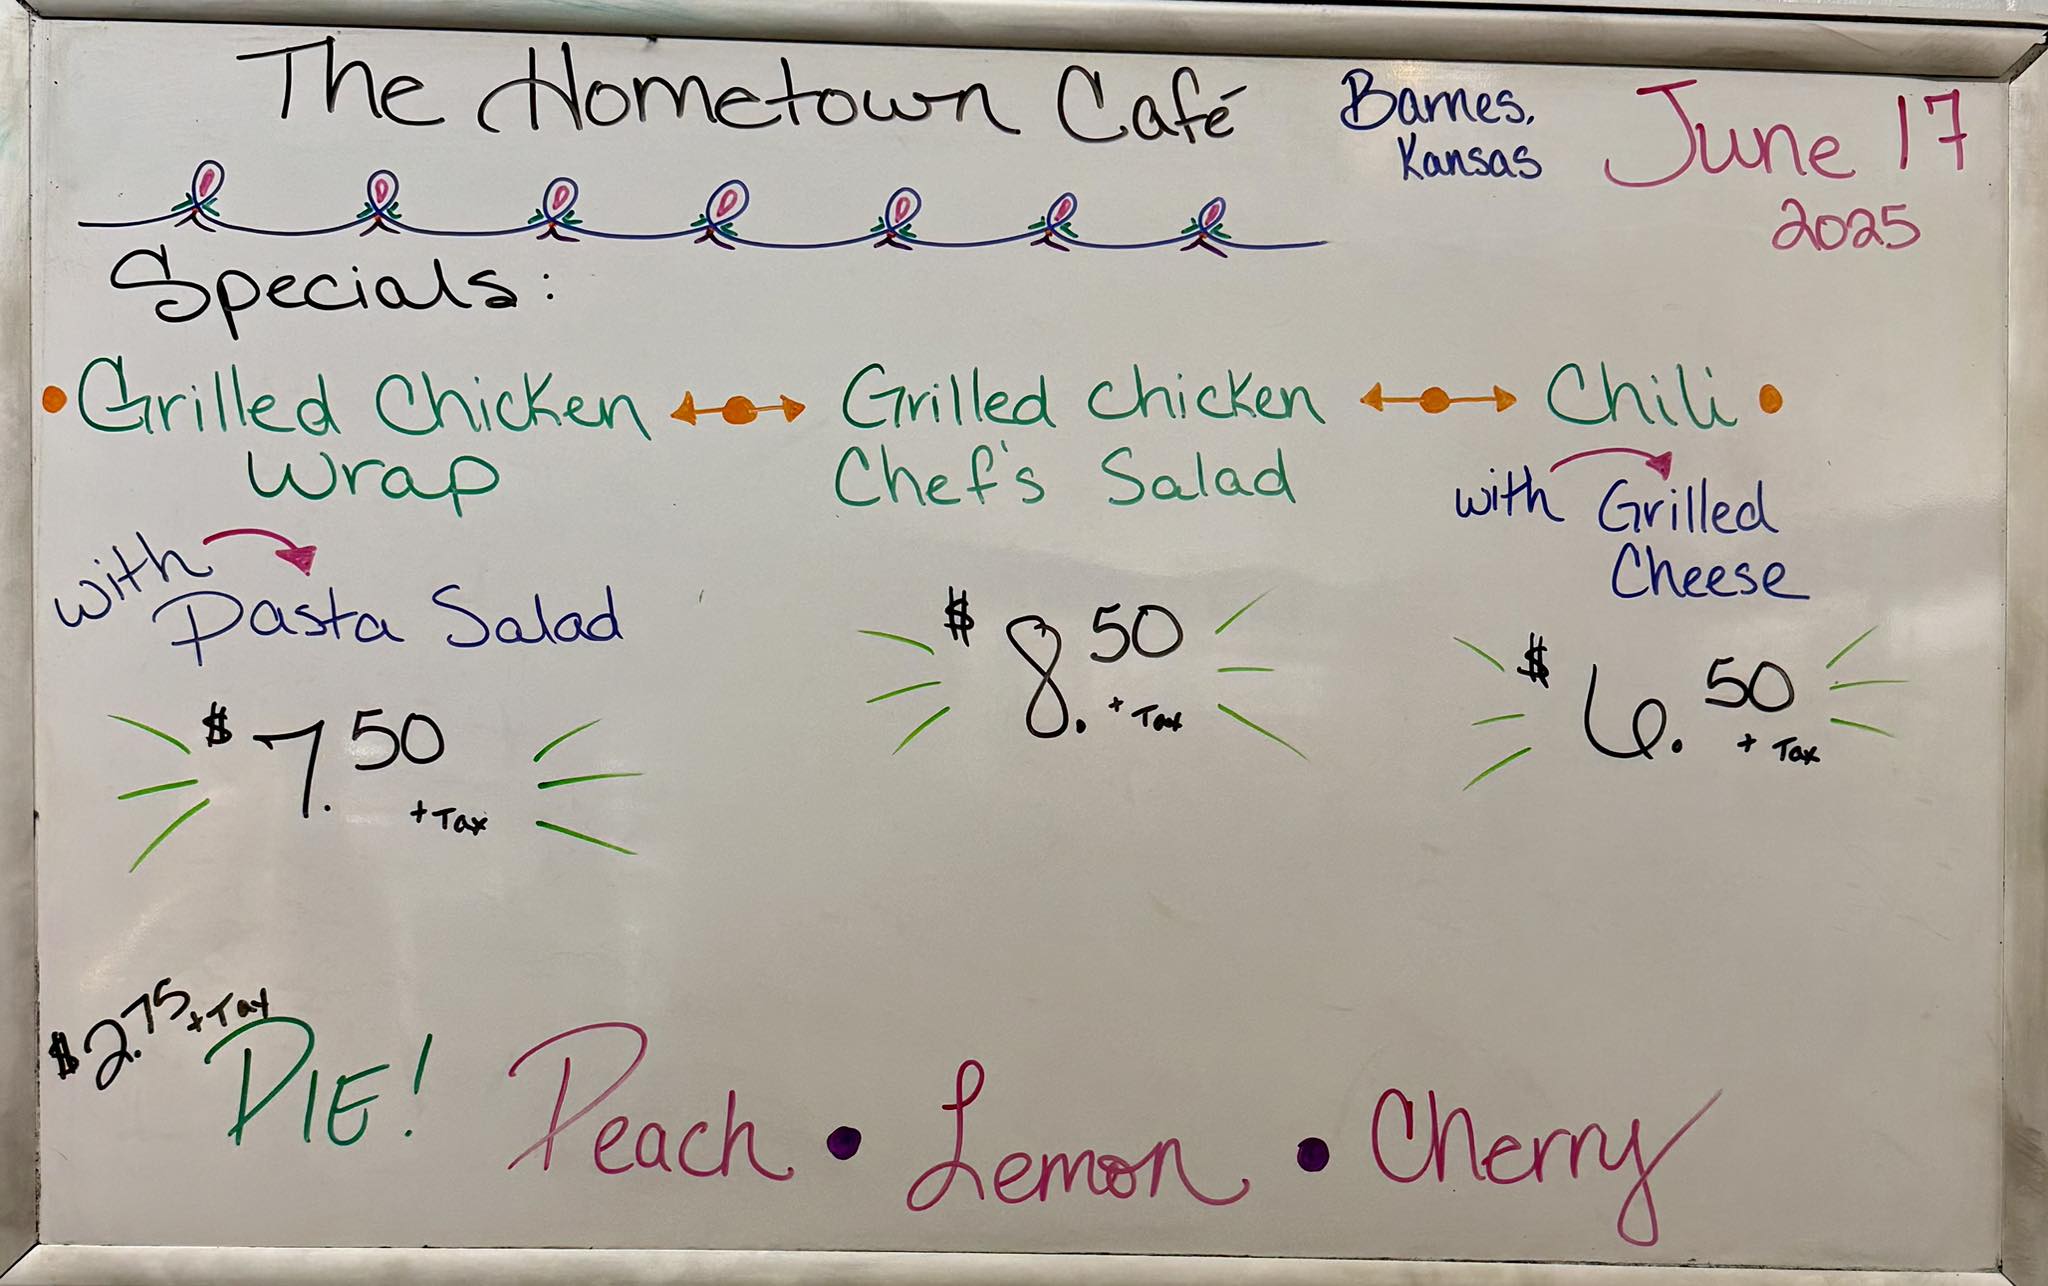 The Hometown Café
Barnes,
Kansas
June 17
2025
Specials:
Grilled Chicken
Wrap
with
Pasta Salad
$7.50
+ Tax
Grilled Chicken
Chef's Salad
$8.50
+ Tax
Chili
with Grilled
Cheese
$6.50
+ Tax
$2.75 + Tax
PIE! Peach • Lemon • Cherry